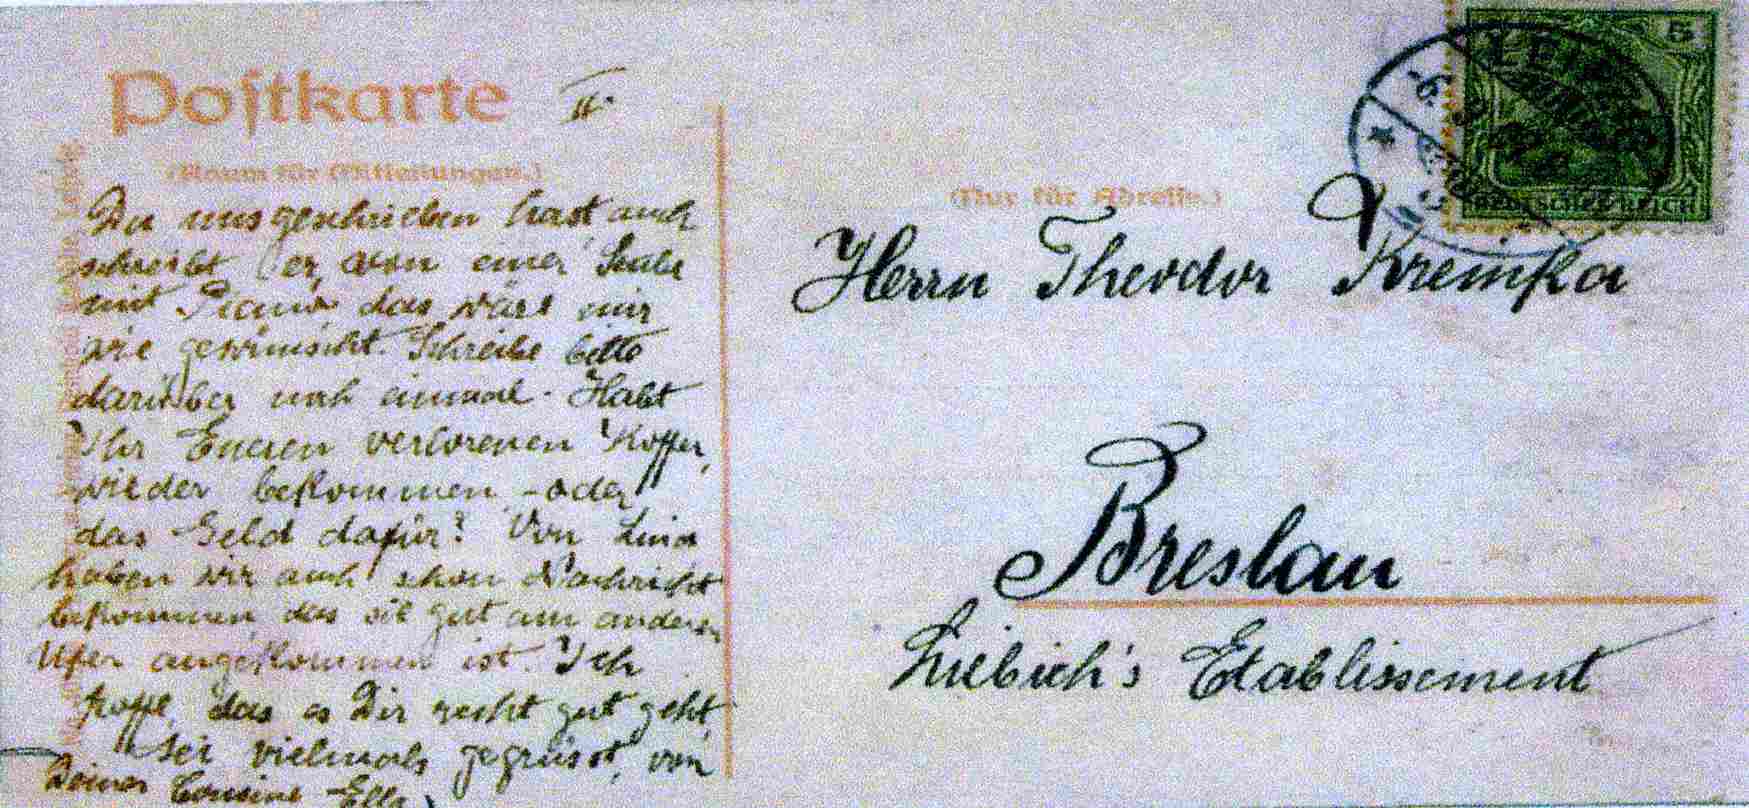 Postkarte II.
(Raum für Mitteilungen.)
Du uns geschrieben hast auch
schreibt er von einer Stube
mit Piano das wäre mir
wie gewünscht. Schreibe bitte
darüber noch einmal. Habt
Ihr Eueren verlorenen Koffer,
wieder bekommen - oder
das Geld dafür? Von Lina
haben wir auch schon Nachricht
bekommen das sie gut am anderen
Ufer angekommen ist. Ich
hoffe, das es Dir recht gut geht
Sei vielmals gegrüsst, von
Deiner Cousine Ella
(Nur für Adresse.)
5
DEUTSCHES REICH
Herrn Theodor Krempka
Breslau
Liebich's Etablissement